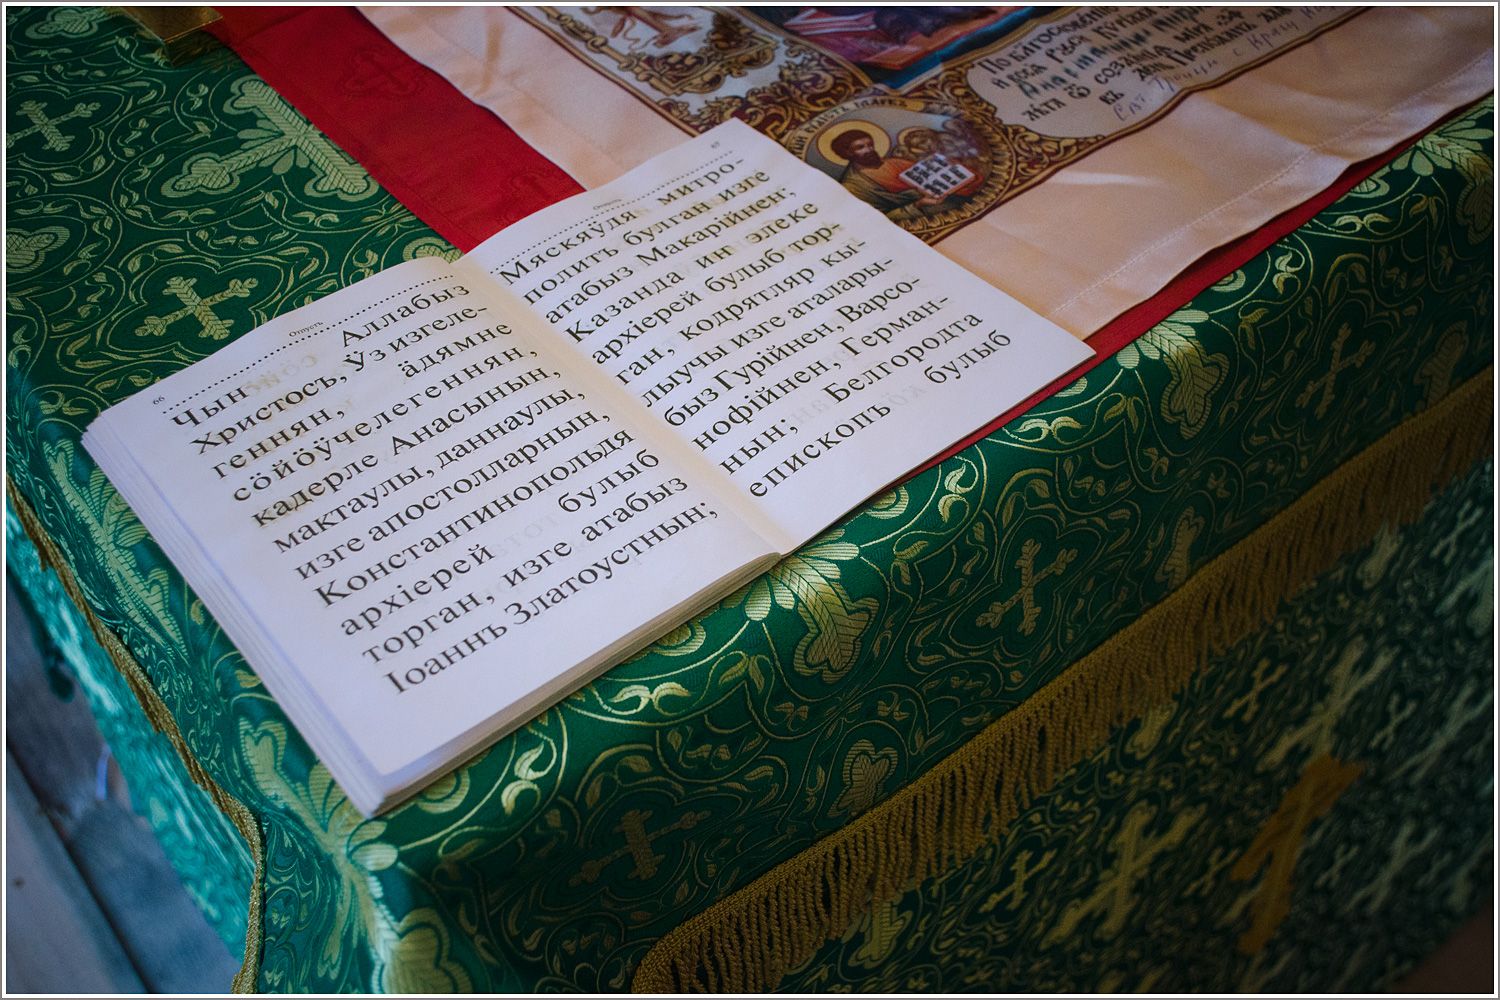 66
Отпустъ
Чын Аллабыз
Христосъ, Ӱз изгеле-
геннян, ӓдямне
сӧйӧӱчелегеннян,
кадерле Анасынын,
мактаулы, даннаулы,
изге апостолларнын,
Константинопольдя
архіерей булыб
торган, изге атабыз
Іоаннъ Златоустнын;
67
Отпустъ
Мяскяӱдя митро-
политъ булган изге
атабыз Макарійнен;
Казанда инг элеке
архіерей булыб тор-
ган, кодрятляр кы-
лыучы изге аталары-
быз Гурійнен, Варсо-
нофійнен, Герман-
нын; Белгородта
епископъ булыб